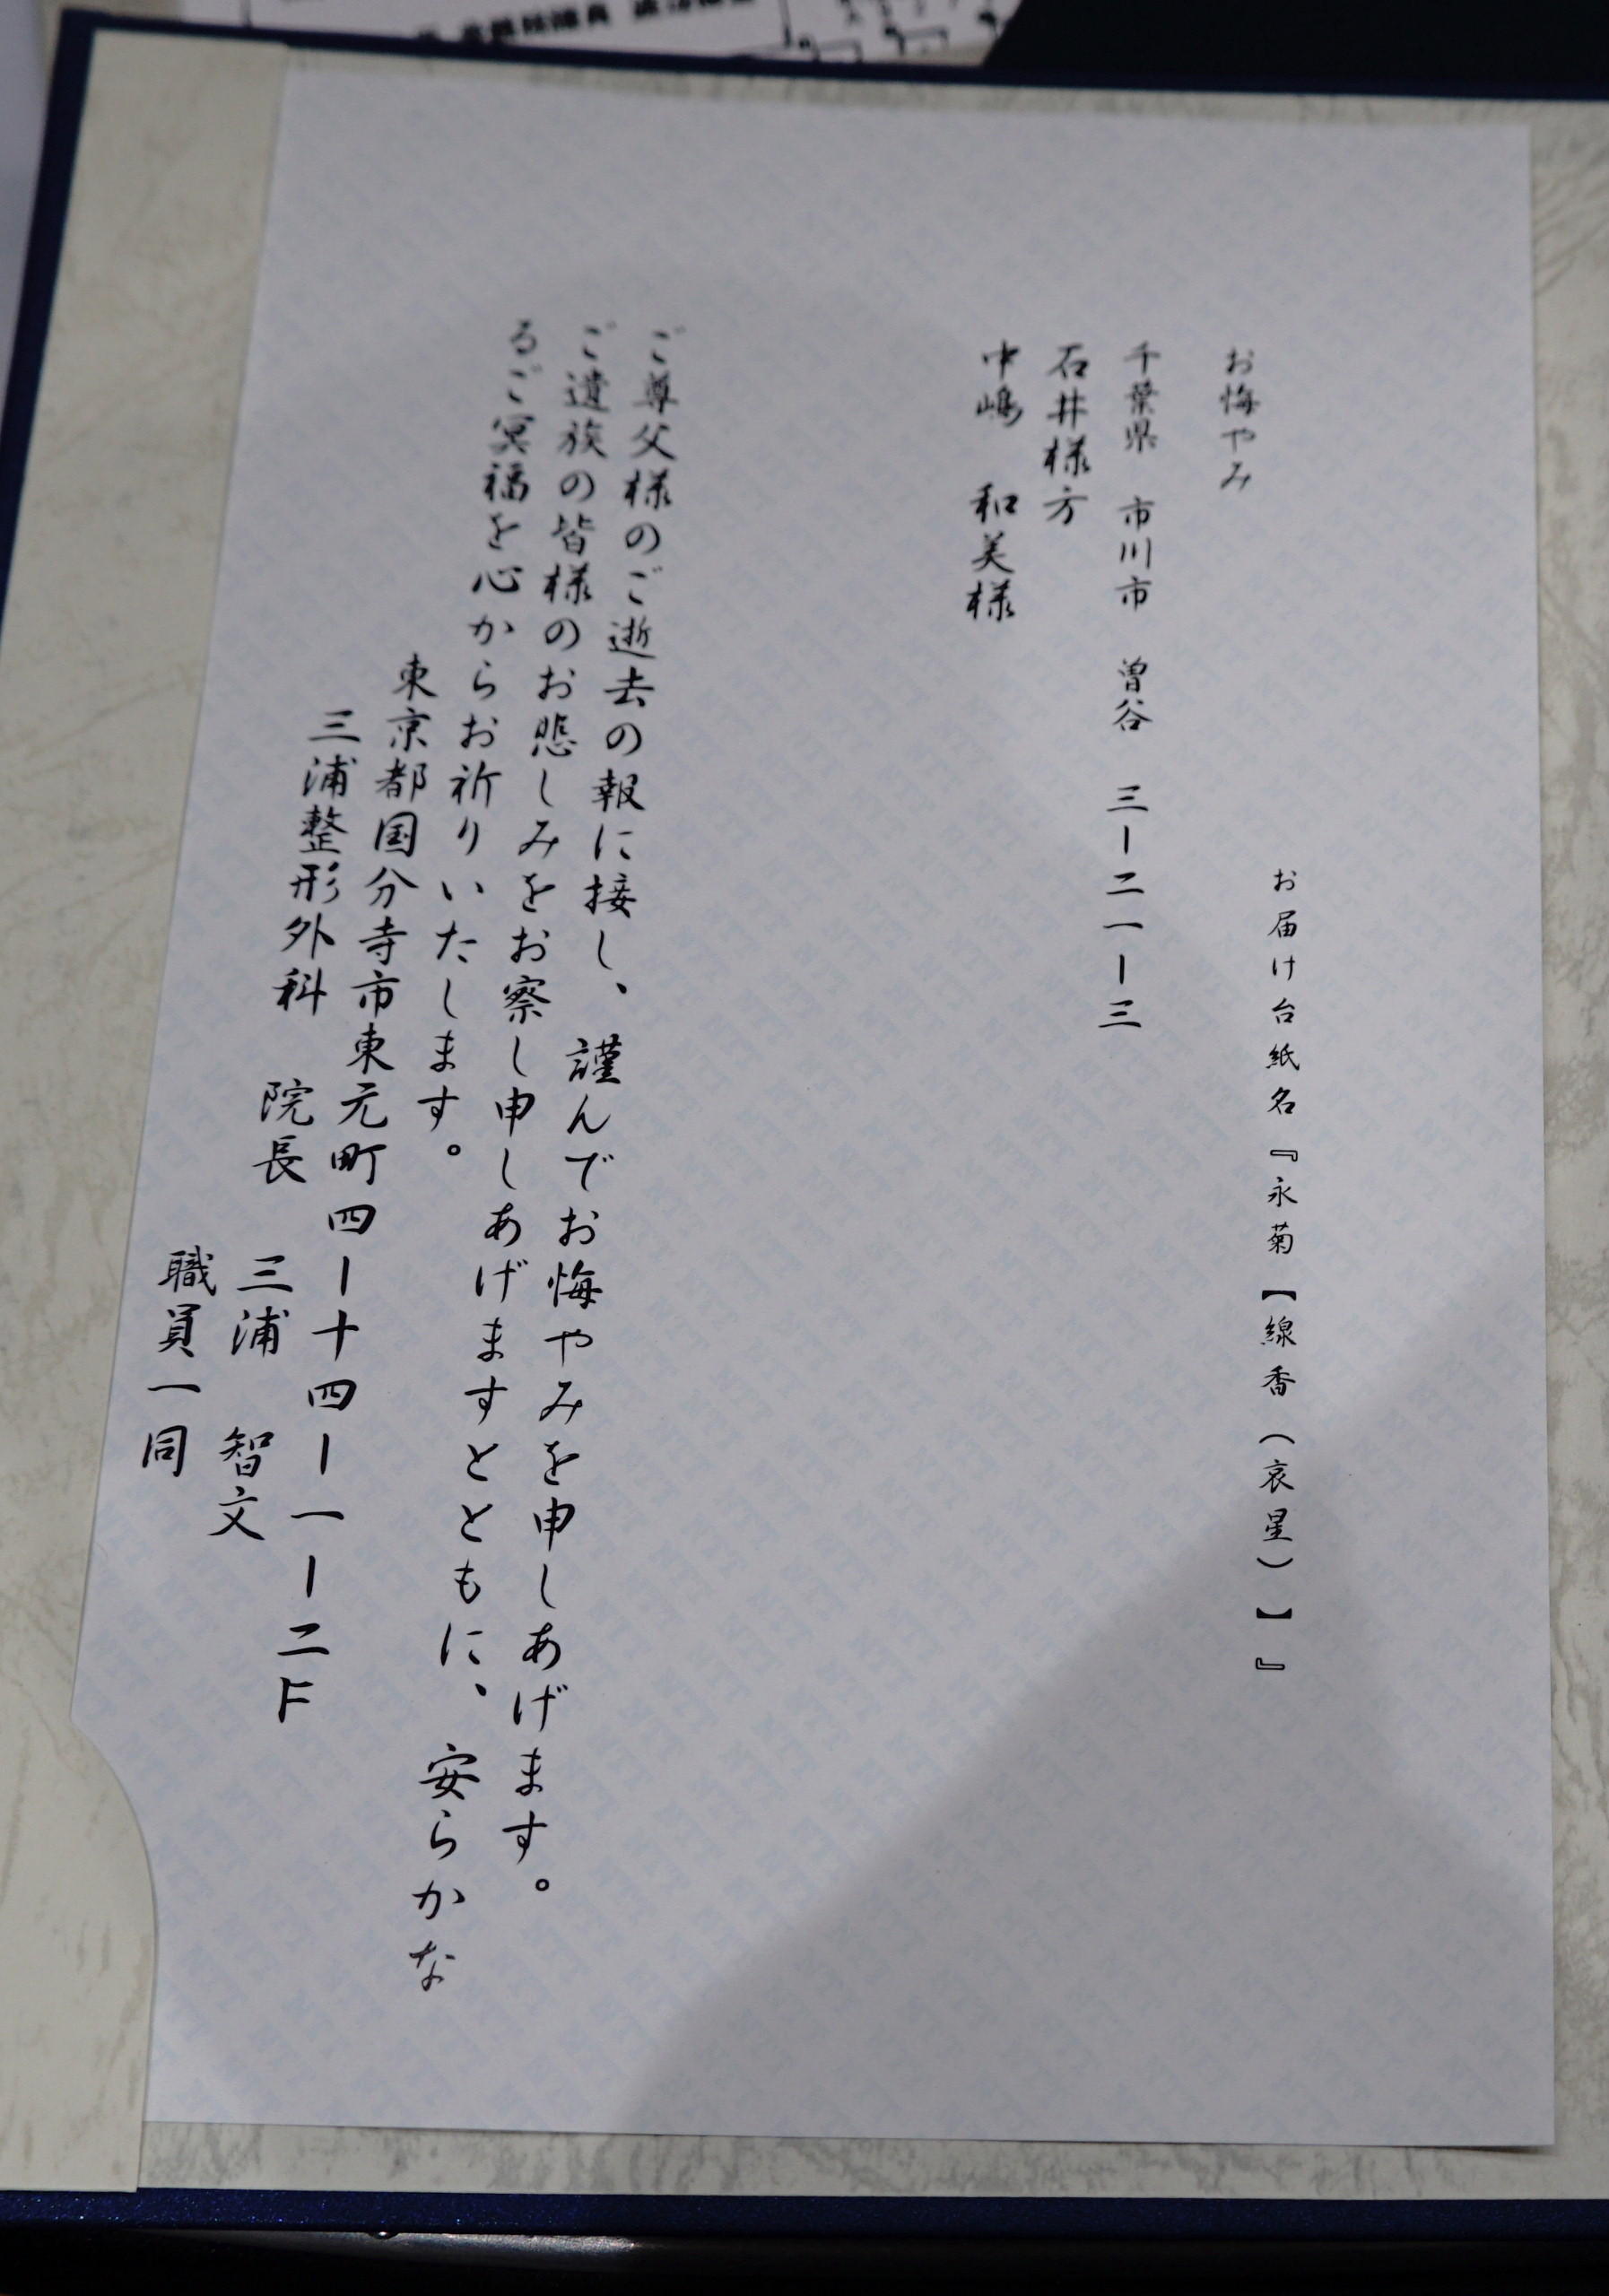 お届け台紙名『永菊【線香（哀星）】』
お悔やみ
千葉県　市川市　曽谷　三ー二一ー三
石井様方
中嶋　和美様
ご尊父様のご逝去の報に接し、謹んでお悔やみを申しあげます。
ご遺族の皆様のお悲しみをお察し申しあげますとともに、安らかな
るご冥福を心からお祈りいたします。
東京都国分寺市東元町四ー十四ー一ー二F
三浦整形外科　院長　三浦　智文
職員一同